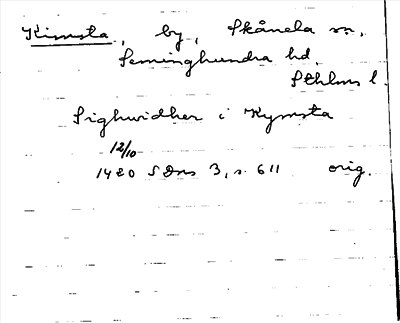 Kimsta, by, Skånela sn,
Seminghundra hd.
Sthlms l.
Sighwidher i Kymsta
12/10
1420 SDns 3, s. 611 orig.